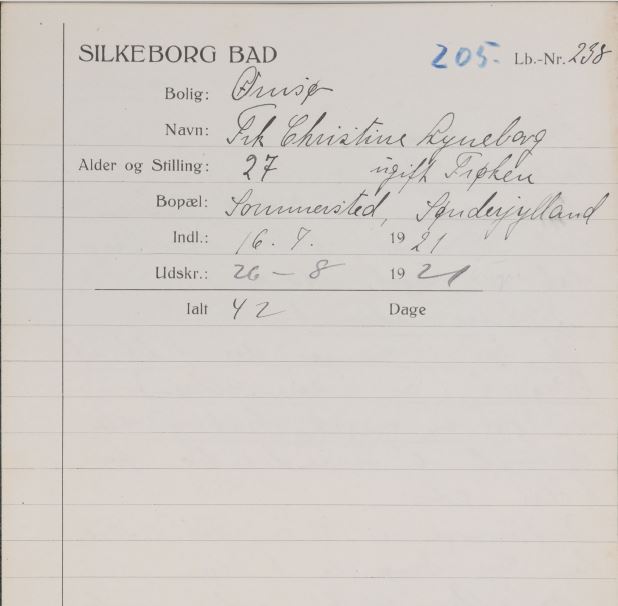 SILKEBORG BAD 205. Lb.-Nr. 238
Bolig: Ørnsø
Navn: Frk Christine Lyneborg
Alder og Stilling: 27 ugift Frøken
Bopæl: Sommersted, Sønderjylland
Indl.: 16. 7. 1921
Udskr.: 26 - 8 1921
Ialt 42 Dage